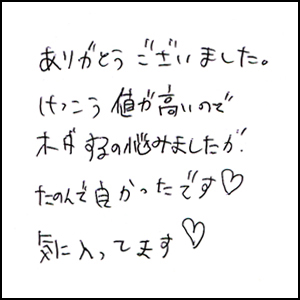 ありがとう ございました。
けっこう 値が高いので
本ダするの悩みましたが、
たのんで良かったです♡
気に入ってます♡